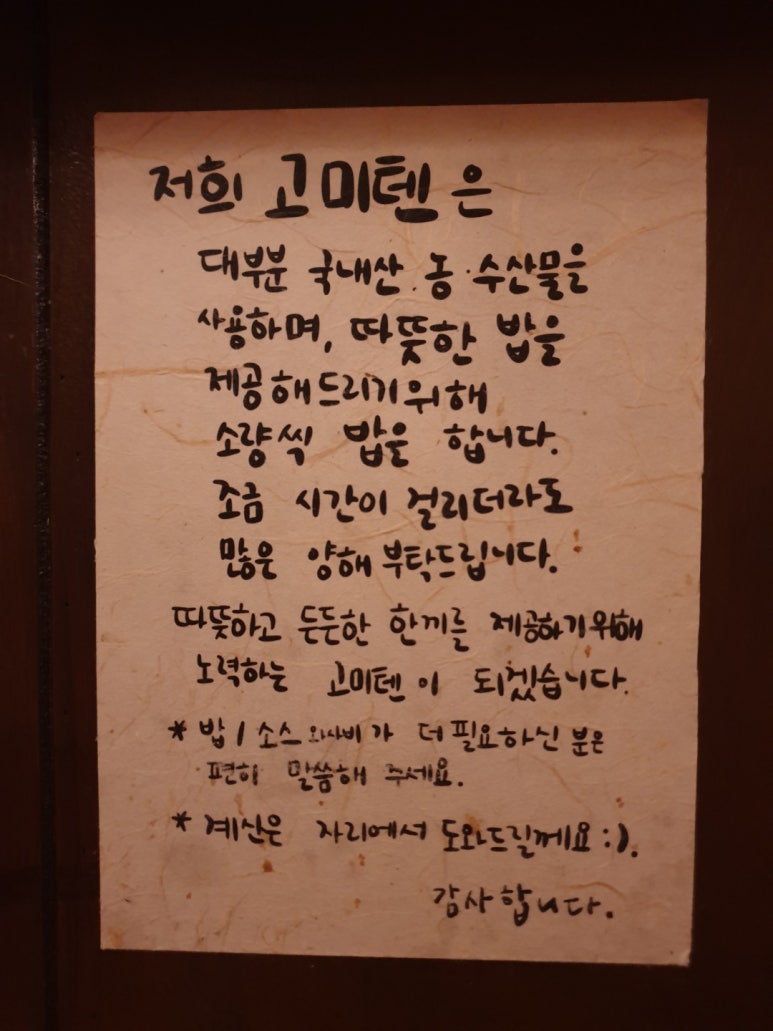 저희 고미텐은
대부분 국내산 농·수산물을
사용하며, 따뜻한 밥을
제공해드리기위해
소량씩 밥을 합니다.
조금 시간이 걸리더라도
많은 양해 부탁드립니다.
따뜻하고 든든한 한끼를 제공하기위해
노력하는 고미텐이 되겠습니다.
* 밥 / 소스 와사비가 더 필요하신 분은
편히 말씀해 주세요.
* 계산은 자리에서 도와드릴께요 :).
감사합니다.